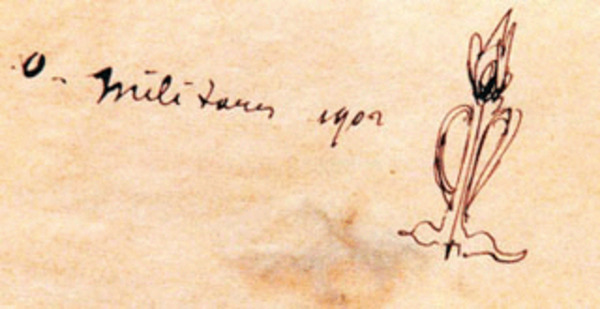 O. Militaris 1902